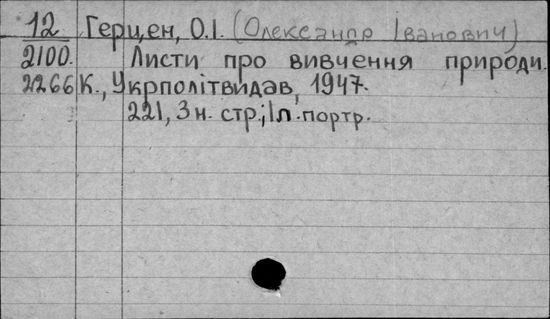 12 Герцен, О.І. (Олександр Іванович)
2100. Листи про вивчення природи.
2266 К., Укрполітвидав, 1947.
221, 3 н. стр.; 1 л. портр.